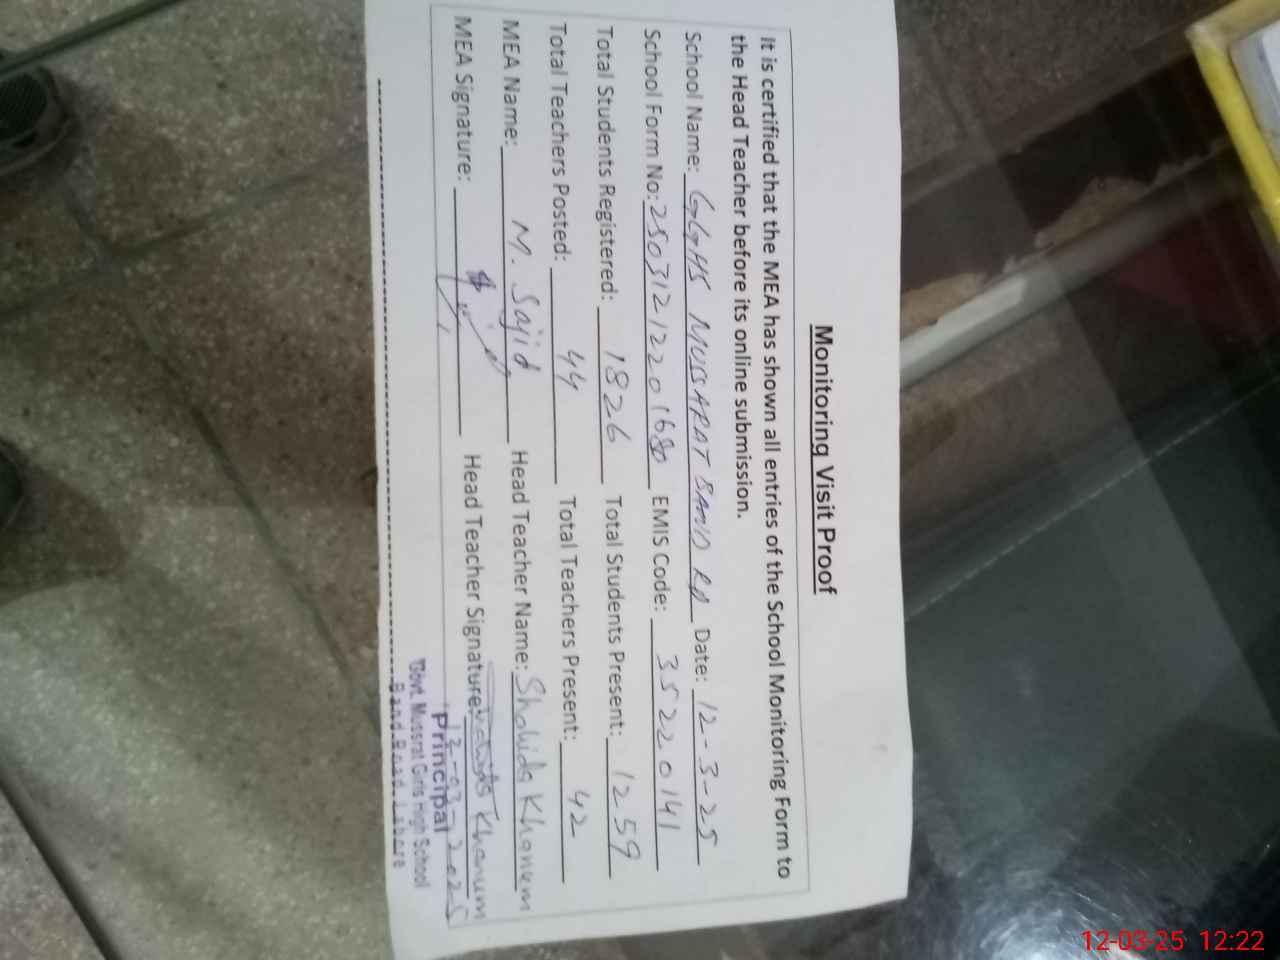 Monitoring Visit Proof
It is certified that the MEA has shown all entries of the School Monitoring Form to
the Head Teacher before its online submission.
School Name: GGHS MUSSARAT BAND RD Date: 12-3-25
School Form No: 25031212201680 EMIS Code: 35220141
Total Students Registered: 1826 Total Students Present: 1259
Total Teachers Posted: 44 Total Teachers Present: 42
MEA Name: M. Sajid Head Teacher Name: Shahida Khanum
MEA Signature: Head Teacher Signature: Khanum
12-03-2025
Principal
Govt. Mussrat Girls High School
Band Road, Lahore
12-03-25 12:22